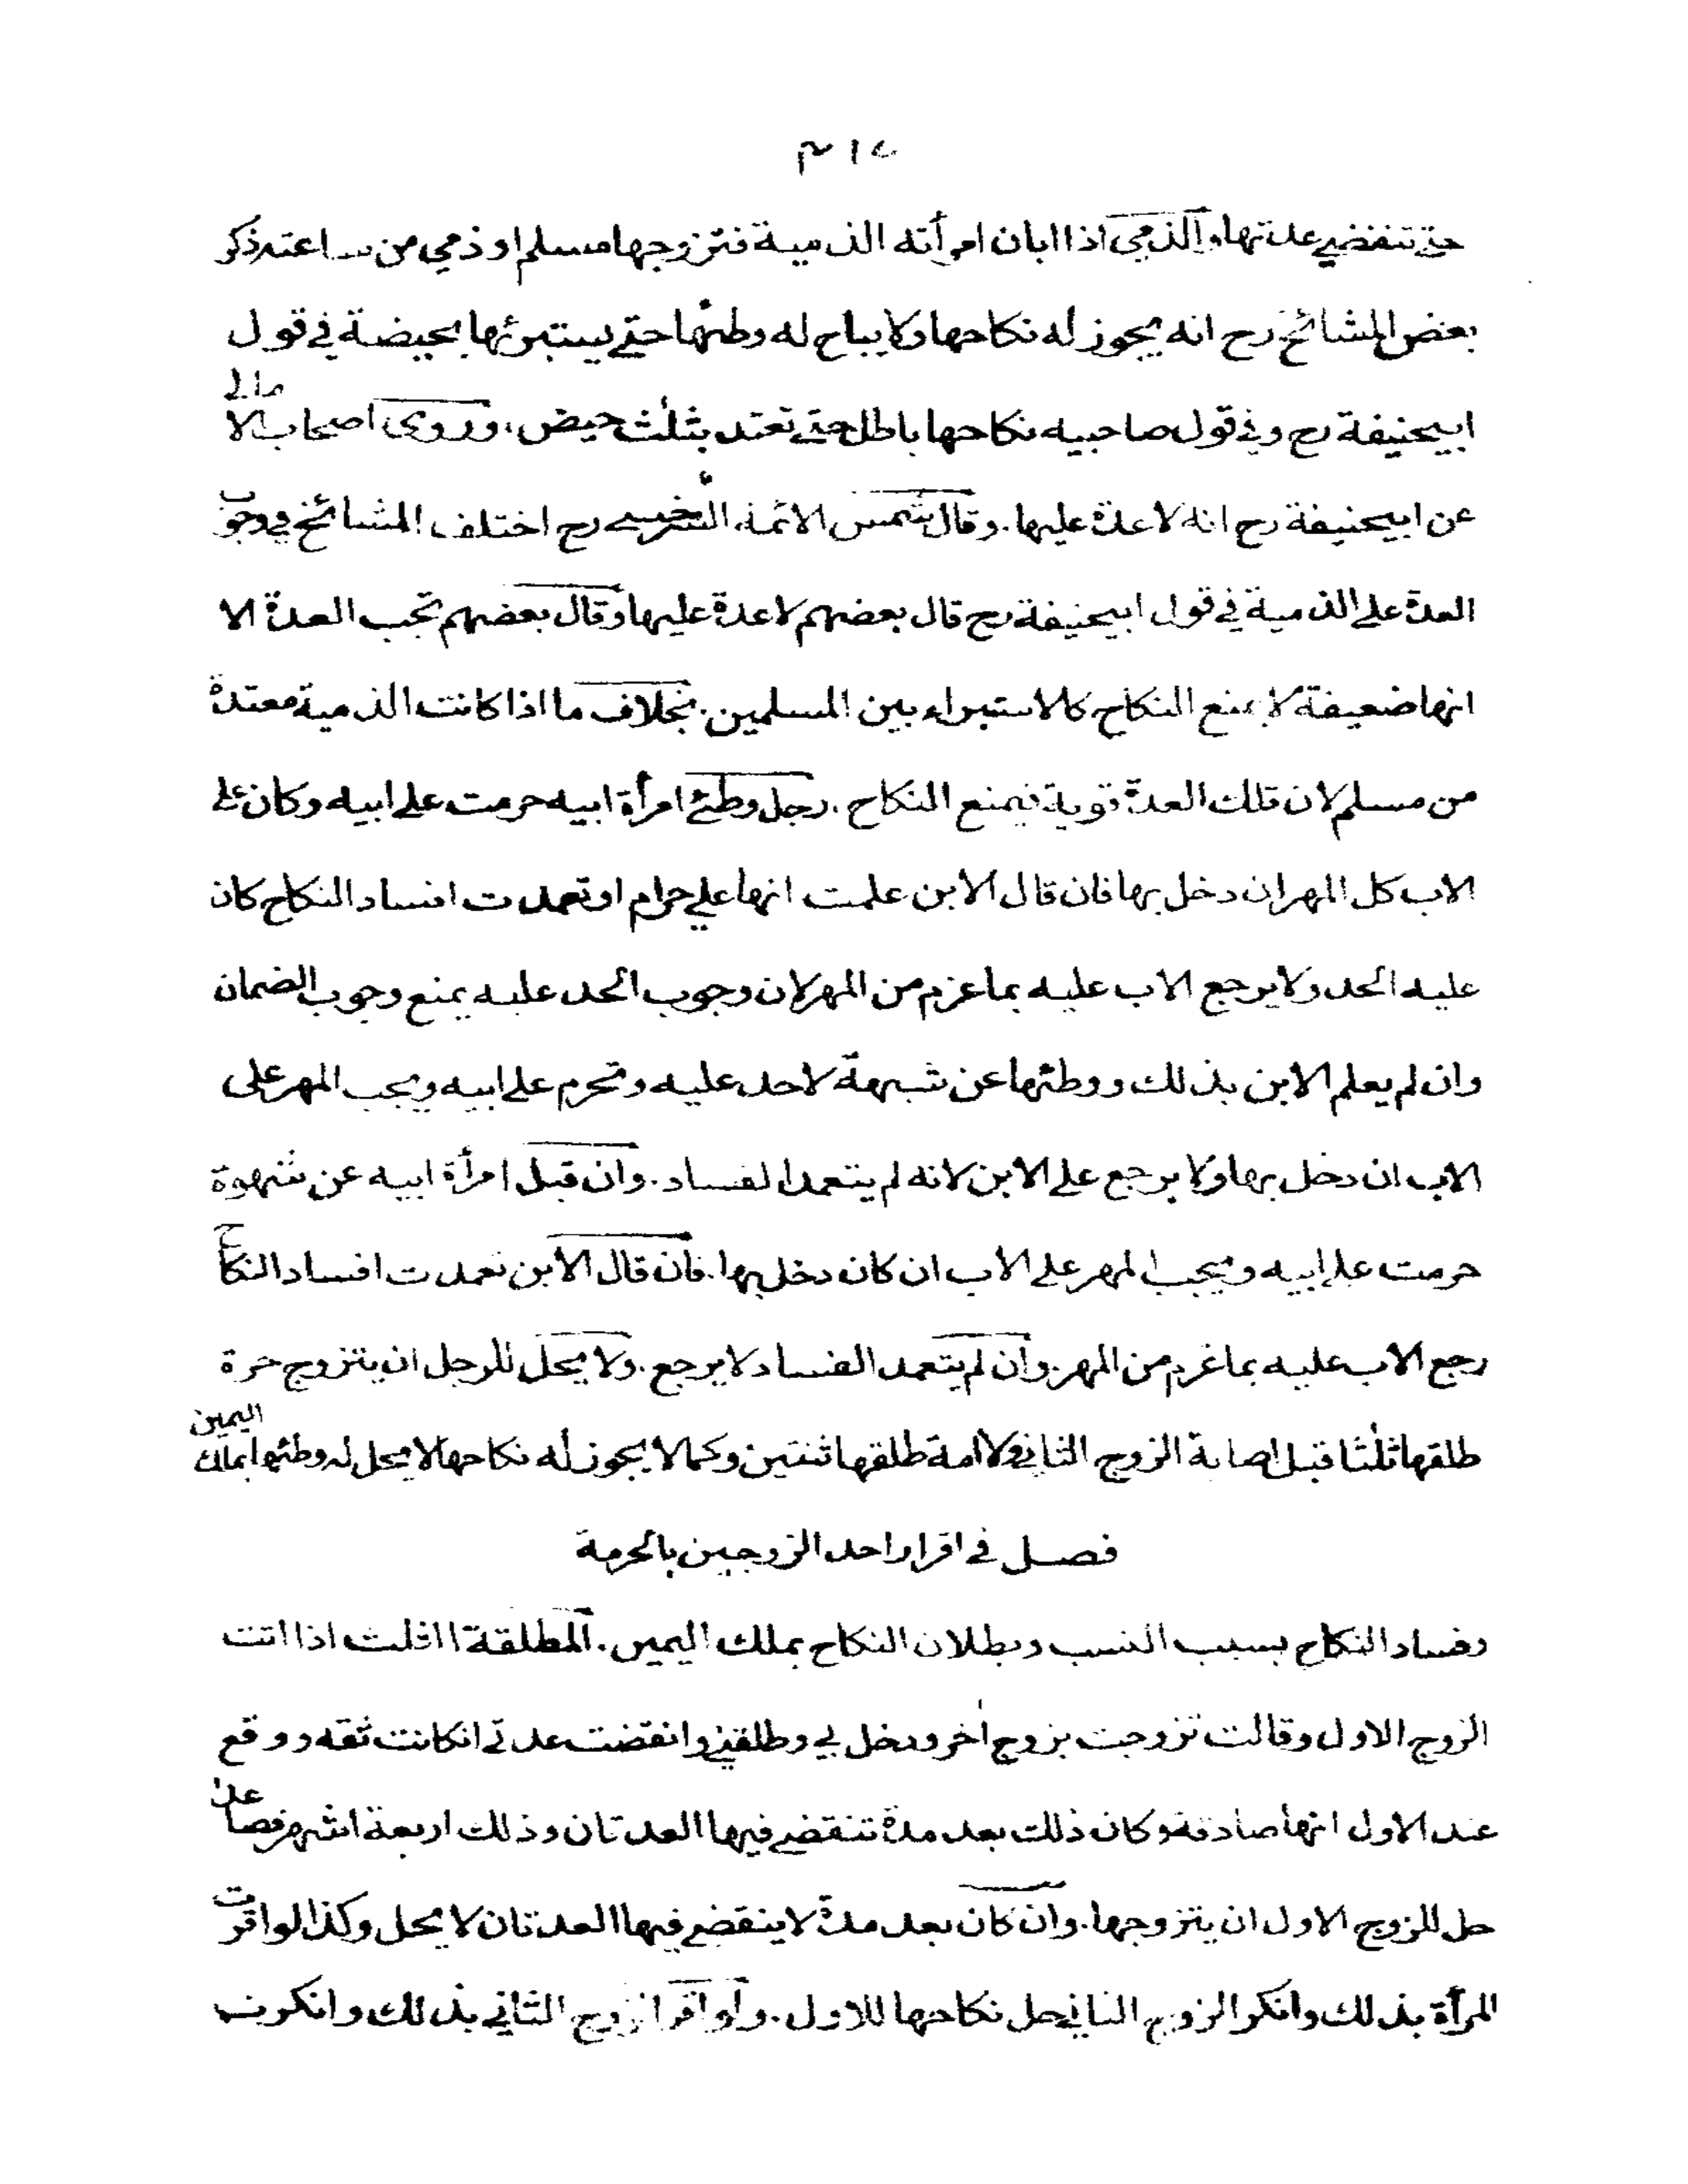 ٤١٢
حتى تنقضي عدتها والذمي اذا ابان امرأته الذمية فتزوجها مسلم او ذمي من ساعته ذكر
بعض المشائخ رح انه يجوز له نكاحها ولا يباح له وطئها حتى يستبرئها بحيضة في قول
ابيحنيفة رح وفي قول صاحبيه نكاحها باطل حتى تعتد بثلث حيض، وروى اصحاب الامالي
عن ابيحنيفة رح انه لا عدة عليها. وقال شمس الائمة السرخسي رح اختلف المشائخ في وجوب
العدة على الذمية في قول ابيحنيفة رح قال بعضهم لا عدة عليها وقال بعضهم تجب العدة الا
انها ضعيفة لا يمنع النكاح كالاستبراء بين المسلمين. بخلاف ما اذا كانت الذمية معتدة
من مسلم لان تلك العدة قوية فيمنع النكاح. رجل وطئ امرأة ابيه حرمت على ابيه وكان على
الاب كل المهر ان دخل بها فان قال الابن علمت انها علي حرام او تعمدت افساد النكاح كان
عليه الحد ولا يرجع الاب عليه بما غرم من المهر لان وجوب الحد عليه يمنع وجوب الضمان
وان لم يعلم الابن بذلك ووطئها عن شبهة لا حد عليه وتحرم على ابيه ويجب المهر على
الاب ان دخل بها ولا يرجع على الابن لانه لم يتعمد الفساد. وان قبل امرأة ابيه عن شهوة
حرمت على ابيه ويجب المهر على الاب ان كان دخل بها. فان قال الابن تعمدت افساد النكاح
رجع الاب عليه بما غرم من المهر وان لم يتعمد الفساد لا يرجع. ولا يحل للرجل ان يتزوج حرة
طلقها ثلثا قبل اصابة الزوج الثاني ولا امة طلقها ثنتين وكما لا يجوز له نكاحها لا يحل له وطئها بملك اليمين
فصل في اقرار احد الزوجين بالحرمة
وفساد النكاح بسبب النسب وبطلان النكاح بملك اليمين. المطلقة الثلث اذا اتت
الزوج الاول وقالت تزوجت بزوج اخر ودخل بي وطلقني وانقضت عدتي انكانت ثقه ووقع
عند الاول انها صادقة وكان ذلك بعد مدة تنقضي فيها العدتان وذلك اربعة اشهر فصاعدا
حل للزوج الاول ان يتزوجها. وان كان بعد مدة لا ينقضي فيها العدتان لا يحل وكذا لو اقرت
المرأة بذلك وانكر الزوج الثاني حل نكاحها للاول. ولو اقر الزوج الثاني بذلك وانكرت